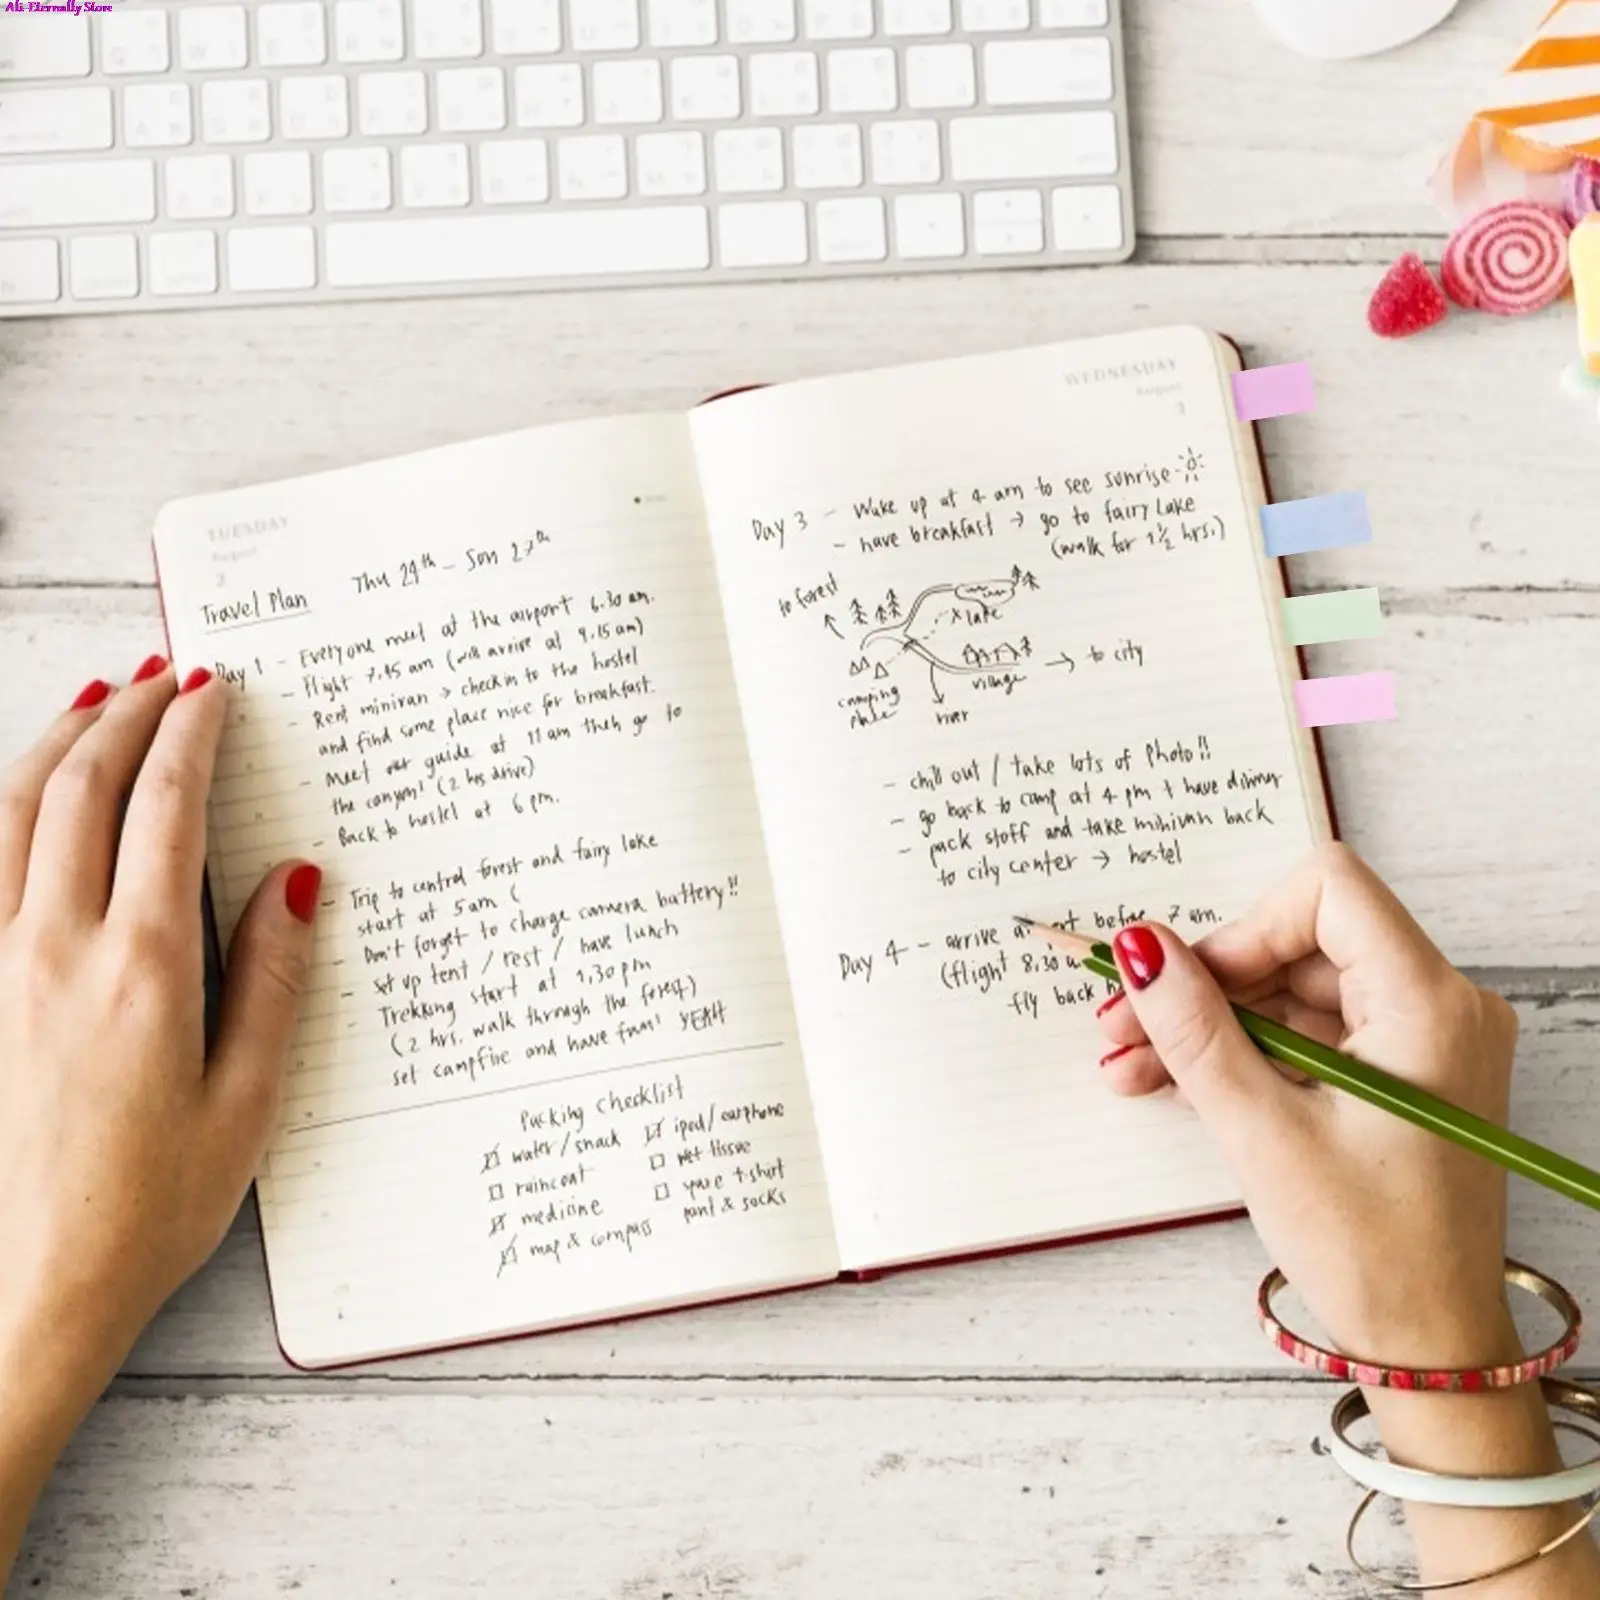 Ali-Eternally Store
TUESDAY
August
2
Travel Plan Thu 24th - Son 27th
Day 1 - Everyone meet at the airport 6.30 am.
- Flight 7.45 am (will arrive at 9.15 am)
- Rent minivan → check in to the hostel
and find some place nice for breakfast.
- Meet our guide at 11 am then go to
the canyon! (2 hrs drive)
- Back to hostel at 6 pm.
- Trip to central forest and fairy lake
start at 5 am (
- Don't forget to charge camera battery!!
- Set up tent / rest / have lunch
- Trekking start at 1,30 pm
(2 hrs. walk through the forest)
set campfire and have fun! YEAH
Packing checklist
water/snack
raincoat
medicine
map & compass
ipod/earphone
wet tissue
spare t-shirt
pant & socks
WEDNESDAY
August
3
Day 3 - Wake up at 4 am to see sunrise
- have breakfast → go to fairy Lake
(walk for 1½ hrs.)
to forest
x lake
camping
place
village
→ to city
river
- chill out / take lots of photo!!
- go back to camp at 4 pm + have dinner
- pack stoff and take minivan back
to city center → hostel
Day 4 - arrive before 7 am.
(flight 8,30
fly back